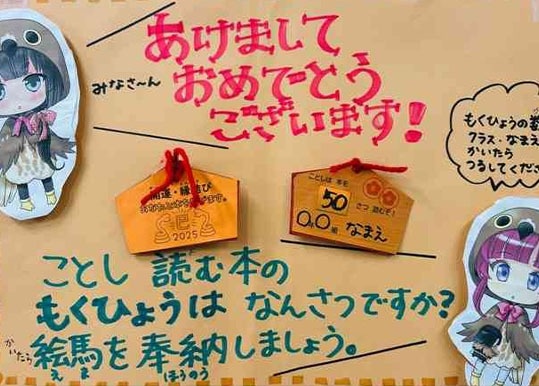 みなさ〜ん
あけまして
おめでとう
ございます!
もくひょうの
クラス・なまえ
かいたら
つるしてくださ
開運・縁結び
巳
2025
ことしは 本を
50
さつ 読むぞ!
0.0組
なまえ
ことし 読む本の
もくひょうは なんさつですか?
かいたら
絵馬を奉納しましょう。
え ま ほうのう